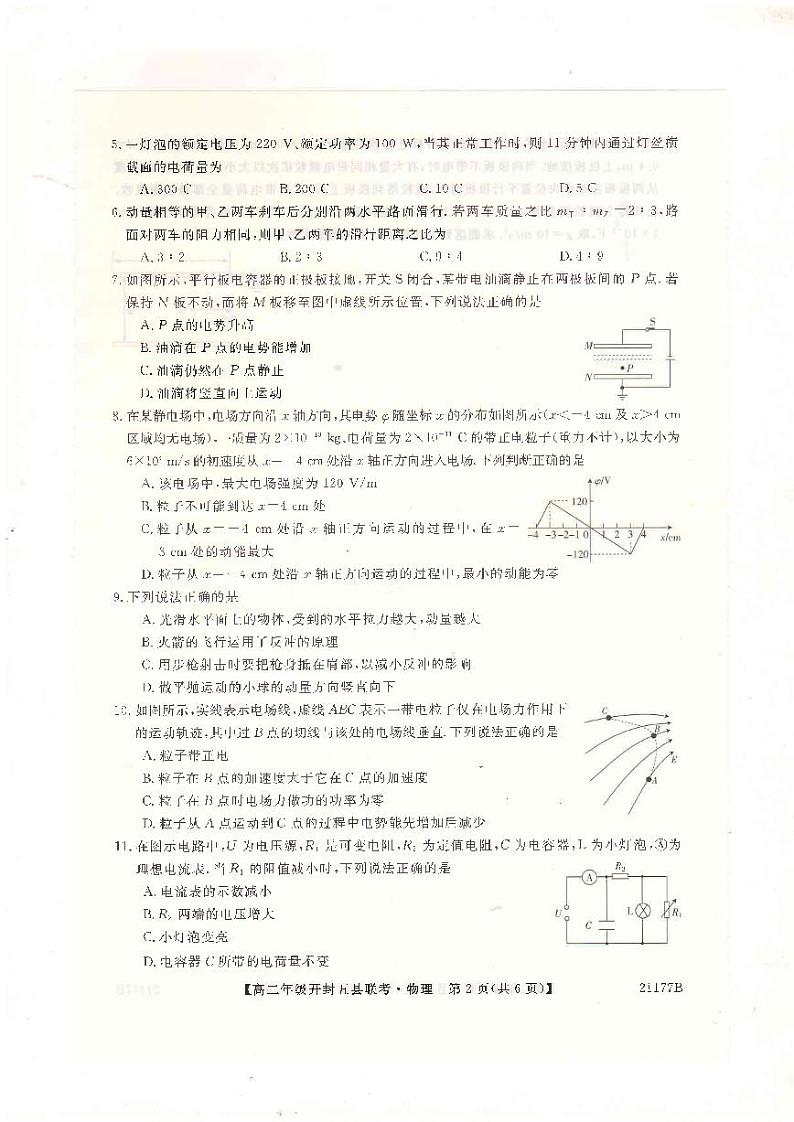 5. 一灯泡的额定电压为 220 V、额定功率为 100 W,当其正常工作时,则 11 分钟内通过灯丝横
截面的电荷量为
A. 300 C B. 200 C C. 10 C D. 5 C
6. 动量相等的甲、乙两车刹车后分别沿两水平路面滑行.若两车质量之比 2∶3,路
面对两车的阻力相同,则甲、乙两车的滑行距离之比为
A. 3∶2 B. 2∶3 C. 9∶4 D. 4∶9
7. 如图所示,平行板电容器的正极板接地,开关 S 闭合,某带电油滴静止在两极板间的 P 点.若
保持 N 板不动,而将 M 板移至图中虚线所示位置,下列说法正确的是
A. P 点的电势升高
B. 油滴在 P 点的电势能增加
C. 油滴仍然在 P 点静止
D. 油滴将竖直向上运动
S
M
P
N
8. 在某静电场中,电场方向沿 x 轴方向,其电势 φ 随坐标 x 的分布如图所示(x<-4 cm 及 x>4 cm
区域均无电场).一质量为 kg、电荷量为 C 的带正电粒子(重力不计),以大小为
m/s 的初速度从 x=-4 cm 处沿 x 轴正方向进入电场.下列判断正确的是
A. 该电场中,最大电场强度为 120 V/m
B. 粒子不可能到达 x=4 cm 处
C. 粒子从 x=-4 cm 处沿 x 轴正方向运动的过程中,在 x=
3 cm 处的动能最大
D. 粒子从 x=-4 cm 处沿 x 轴正方向运动的过程中,最小的动能为零
φ/V
120
-4 -3 -2 -1 0 1 2 3 4 x/cm
-120
9. 下列说法正确的是
A. 光滑水平面上的物体,受到的水平拉力越大,动量越大
B. 火箭的飞行运用了反冲的原理
C. 用步枪射击时要把枪身抵在肩部,以减小反冲的影响
D. 做平抛运动的小球的动量方向竖直向下
10. 如图所示,实线表示电场线,虚线 ABC 表示一带电粒子仅在电场力作用下
的运动轨迹,其中过 B 点的切线与该处的电场线垂直.下列说法正确的是
A. 粒子带正电
B. 粒子在 B 点的加速度大于它在 C 点的加速度
C. 粒子在 B 点时电场力做功的功率为零
D. 粒子从 A 点运动到 C 点的过程中电势能先增加后减少
C
B
E
A
11. 在图示电路中,U 为电压源,R₁ 是可变电阻,R₂ 为定值电阻,C 为电容器,L 为小灯泡,Ⓐ为
理想电流表.当 R₁ 的阻值减小时,下列说法正确的是
A. 电流表的示数减小
B. R₂ 两端的电压增大
C. 小灯泡变亮
D. 电容器 C 所带的电荷量不变
A R₂
U C L R₁
【高二年级开封五县联考·物理 第 2 页(共 6 页)】 21177B